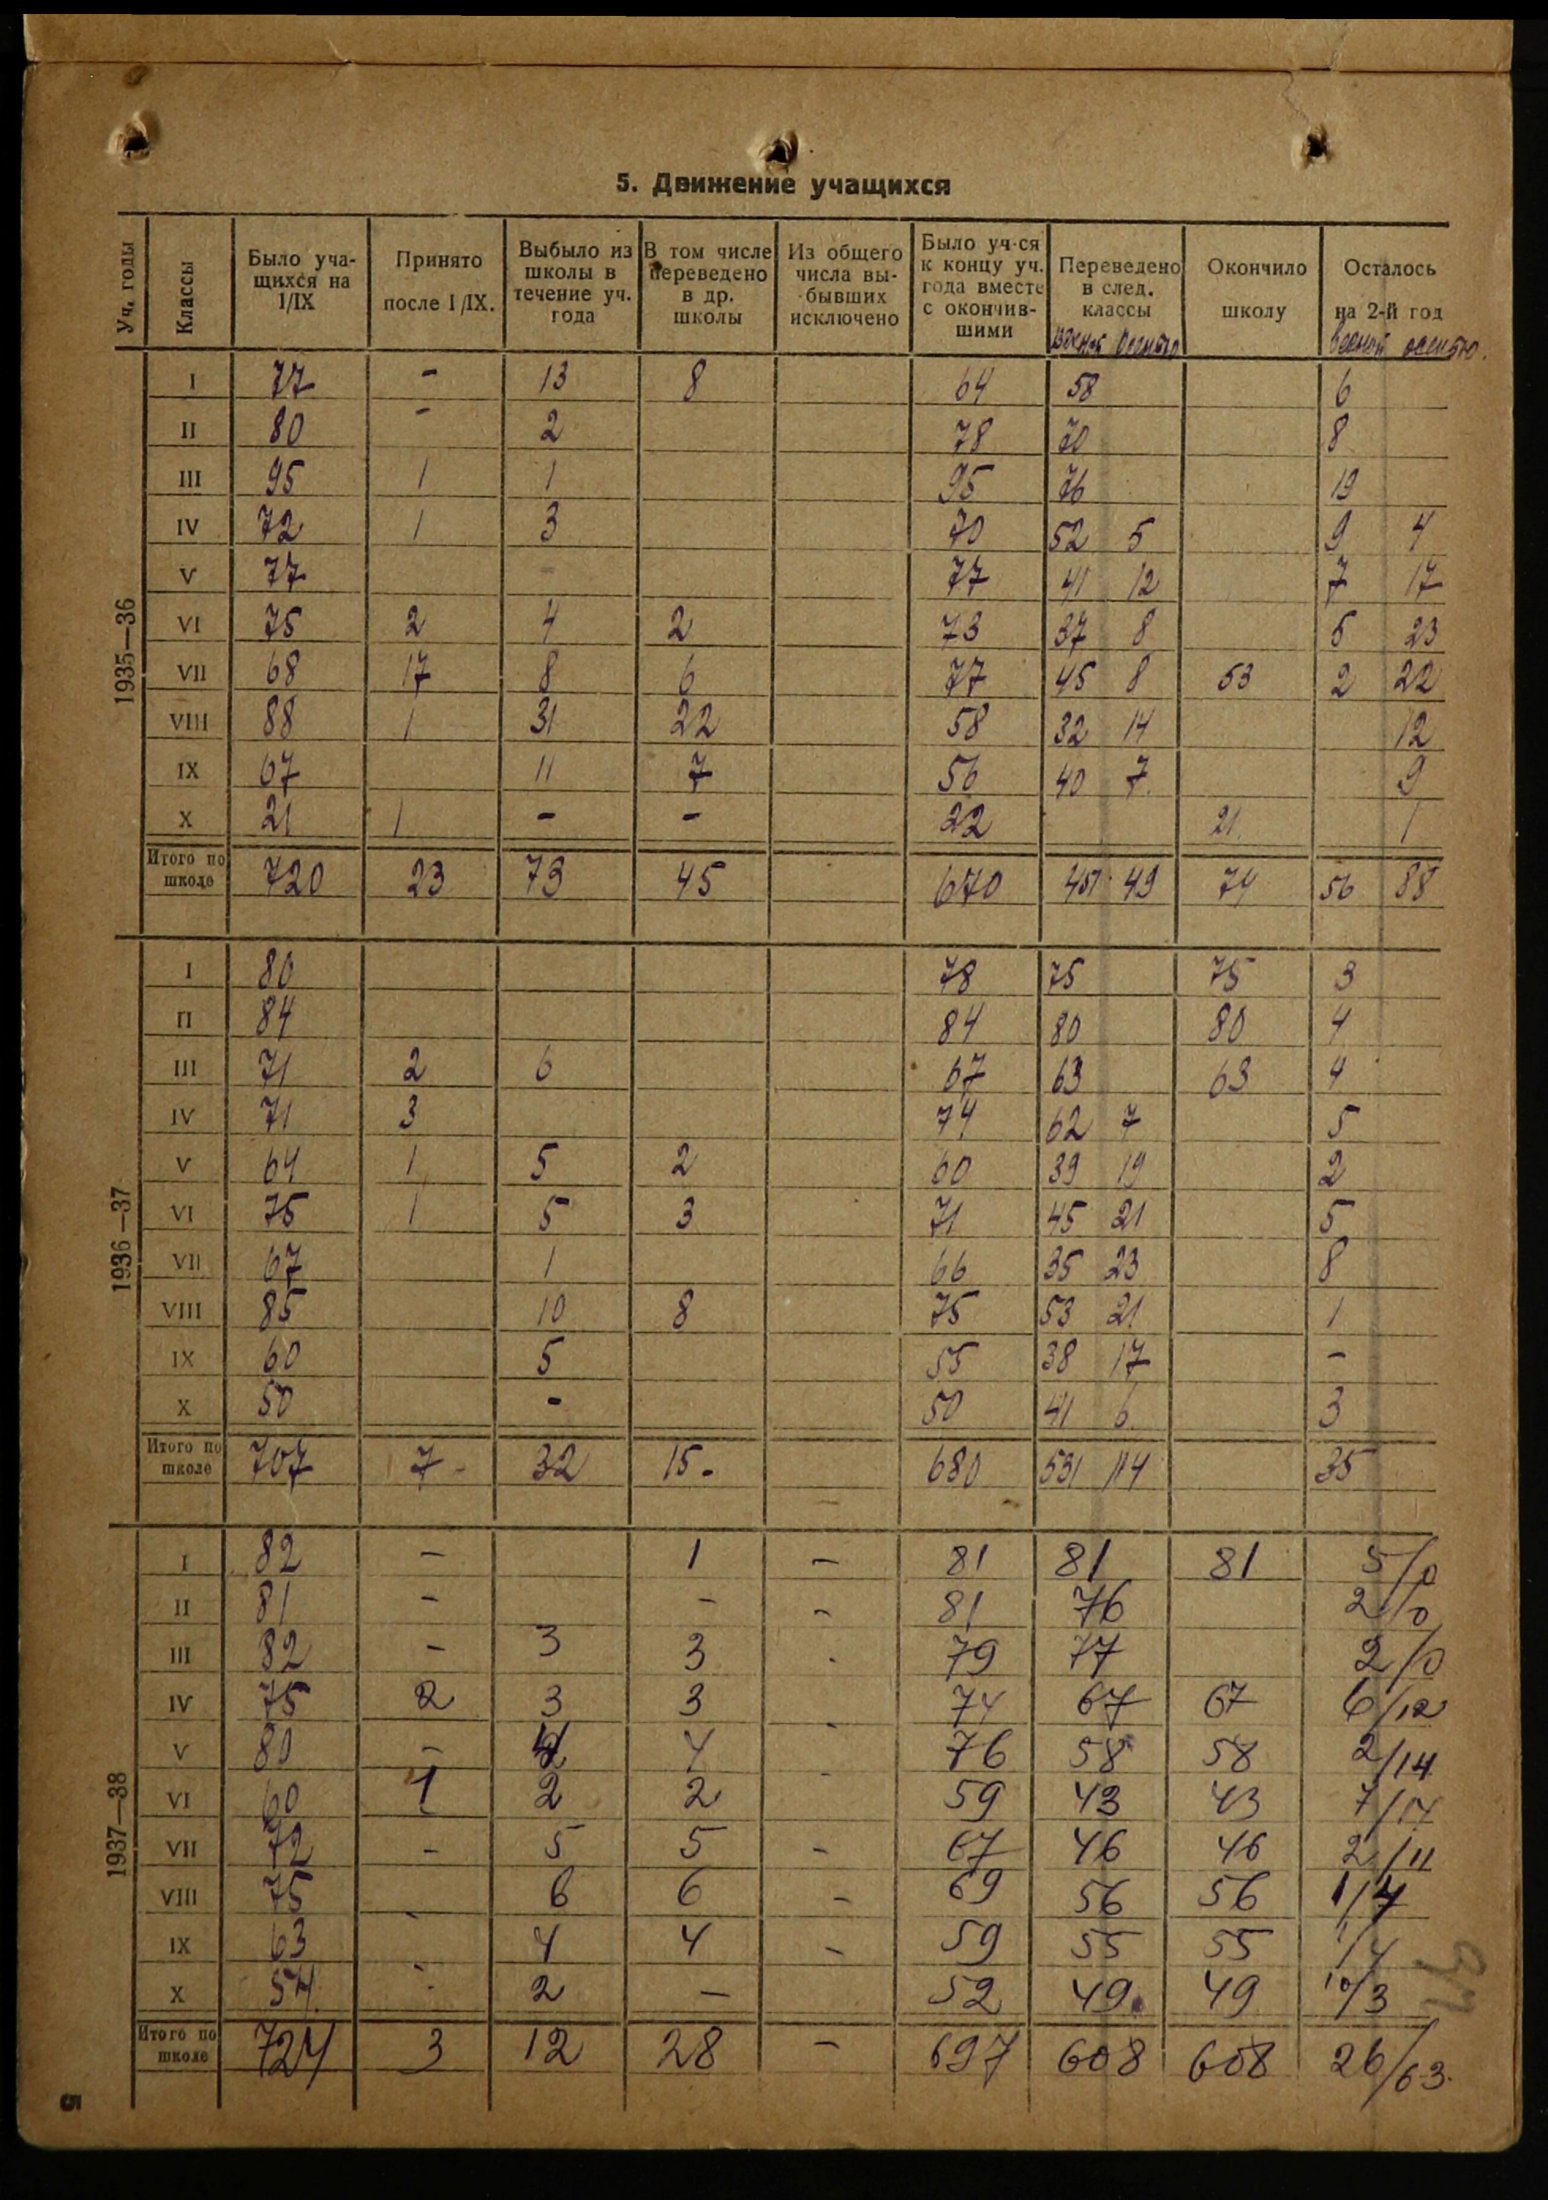 5. Движение учащихся
Уч. годы | Классы | Было уча-щихся на 1/IX | Принято после 1/IX. | Выбыло из школы в течение уч. года | В том числе переведено в др. школы | Из общего числа вы-бывших исключено | Было уч-ся к концу уч. года вместе с окончив-шими | Переведено в след. классы весной осенью | Окончило школу | Осталось на 2-й год весной осенью.
1935—36
I 77 - 13 8 64 58 6
II 80 - 2 78 70 8
III 95 1 1 95 76 19
IV 72 1 3 70 52 5 9 4
V 77 - 77 41 12 7 17
VI 75 2 4 2 73 37 8 5 23
VII 68 17 8 6 77 45 8 53 2 22
VIII 88 1 31 22 58 32 14 12
IX 67 11 7 56 40 7 9
X 21 1 - - 22 21 1
Итого по школе 720 23 73 45 670 451 49 74 56 88
1936—37
I 80 78 75 75 3
II 84 84 80 80 4
III 71 2 6 67 63 63 4
IV 71 3 74 62 7 5
V 64 1 5 2 60 39 19 2
VI 75 1 5 3 71 45 21 5
VII 67 1 66 35 23 8
VIII 85 10 8 75 53 21 1
IX 60 5 55 38 17 -
X 50 - 50 41 6 3
Итого по школе 707 7 - 32 15. 680 531 114 35
1937—38
I 82 - 1 - 81 81 81 5/0
II 81 - - - 81 76 2/0
III 82 - 3 3 79 77 2/0
IV 75 2 3 3 74 67 67 6/12
V 80 - 4 4 - 76 58 58 2/14
VI 60 1 2 2 - 59 43 43 7/17
VII 72 - 5 5 - 67 46 46 2/11
VIII 75 6 6 - 69 56 56 1/4
IX 63 - 4 4 - 59 55 55 /4
X 54 - 2 - 52 49 49 /3
Итого по школе 724 3 12 28 - 697 608 608 26/63.
5